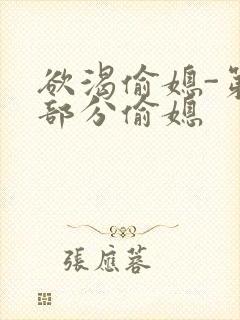 欲渴偷媳-第
部分偷媳
張應蓉